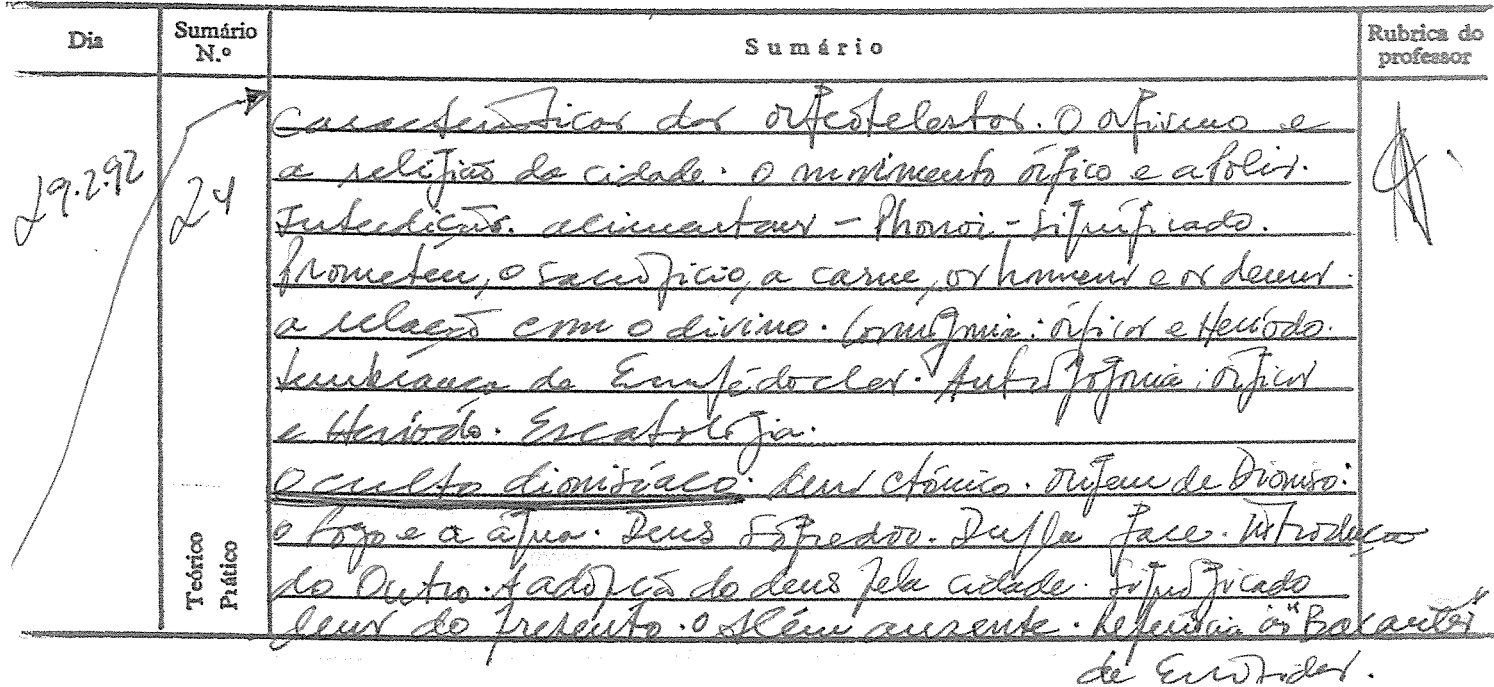 Dia
Sumário N.º
Sumário
Rubrica do professor
29.2.92
24
Características dos orfeotelestos. O orfismo e
a religião da cidade. O movimento órfico e a polis.
Interdições alimentares - Phonoi - significado.
Prometeu, o sacrifício, a carne, os homens e os deuses.
a relação com o divino. Cosmogonia: órficos e Hesíodo.
Lembrança de Empédocles. Antropogonia: órficos
e Hesíodo. Escatologia.
O culto dionisíaco. deus ctónico. origem de Dioniso:
o fogo e a água. Deus sofredor. Dupla face. Introdução
do Outro. A adopção do deus pela cidade. Significado
deus do presente. o Além ausente. Referência às "Bacantes"
de Eurípides.
Teórico
Prático